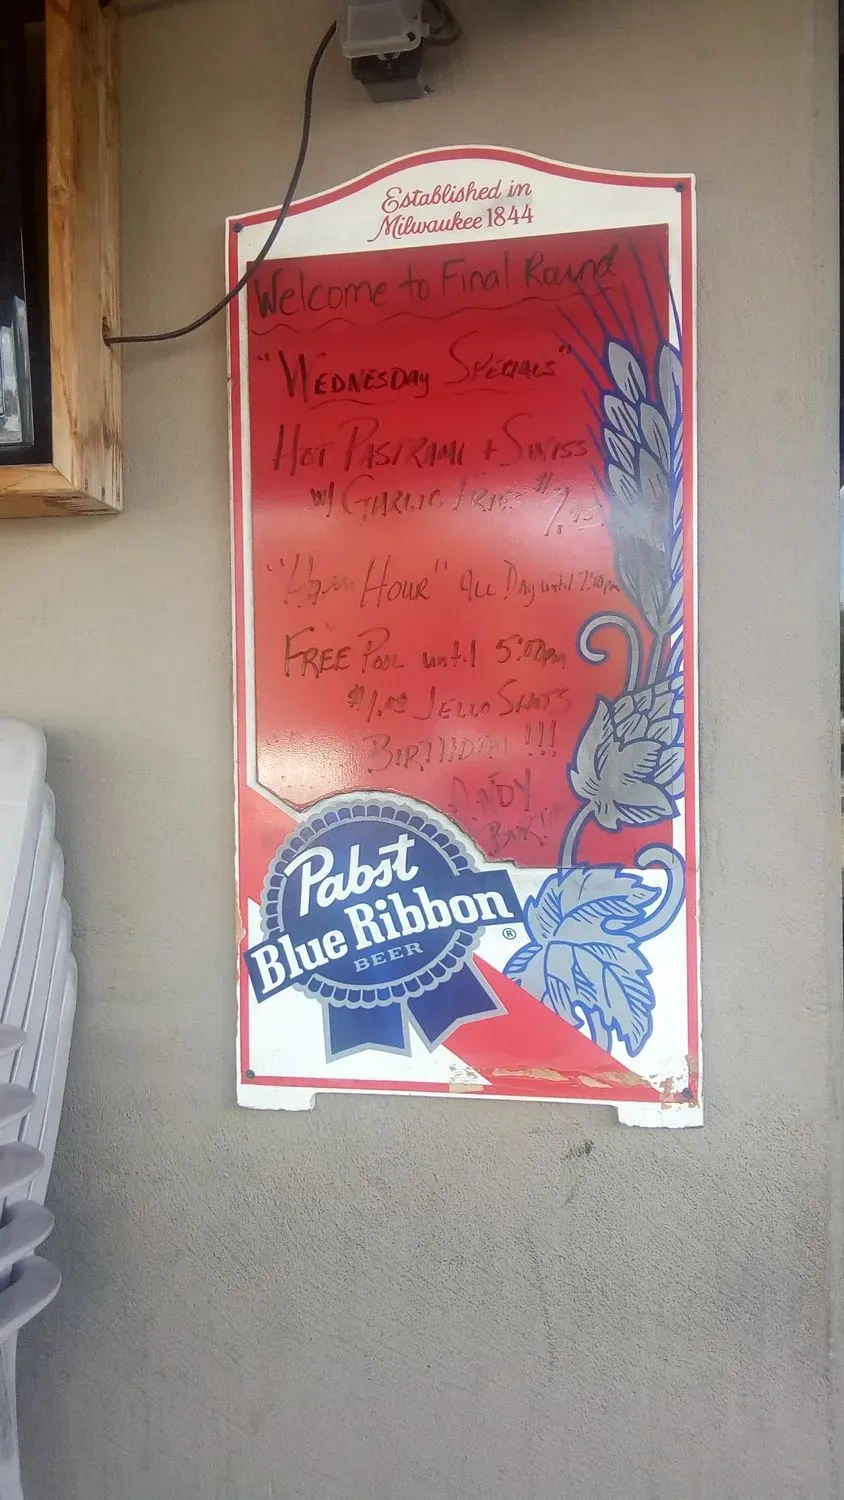 Established in
Milwaukee 1844
Welcome to Final Round
"Wednesday Specials"
Hot Pastrami + Swiss
w/ Garlic Fries $7.95
"Happy Hour" All Day until 7:00pm
FREE Pool until 5:00pm
$1.00 Jello Shots
Birthday !!!
Andy
Pabst
Blue Ribbon ®
BEER